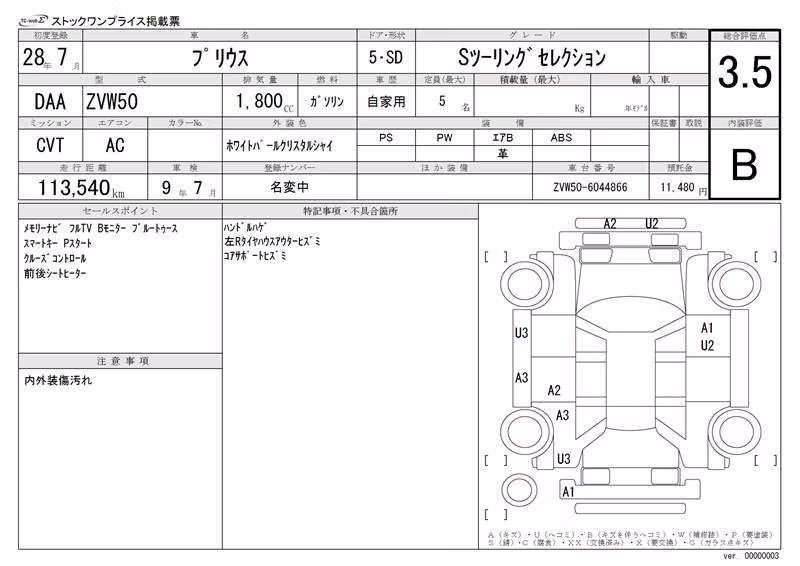 TC-webΣ ストックワンプライス掲載票
初度登録 車名 ドア・形状 グレード 駆動 総合評価点
28年7月 プリウス 5・SD Sツーリングセレクション 3.5
型式 排気量 燃料 車歴 定員(最大) 積載量(最大) 輸入車
DAA ZVW50 1,800CC ガソリン 自家用 5名 Kg 年モデル
ミッション エアコン カラーNo. 外装色 装備 保証書 取説 内装評価
CVT AC ホワイトパールクリスタルシャイ PS PW エアB ABS B
革
走行距離 車検 登録ナンバー ほか装備 車台番号 預託金
113,540km 9年7月 名変中 ZVW50-6044866 11,480円
セールスポイント
メモリーナビ フルTV Bモニター ブルートゥース
スマートキー Pスタート
クルーズコントロール
前後シートヒーター
注意事項
内外装傷汚れ
特記事項・不具合箇所
ハンドルハゲ
左Rタイヤハウスアウターヒズミ
コアサポートヒズミ
A2 U2
[ ] [ ]
U3 A1
U2
A3 A2
A3
U3
[ ] [ ]
A1
[ ]
A(キズ)・U(ヘコミ)・B(キズを伴うヘコミ)・W(補修跡)・P(要塗装)
S(錆)・C(腐食)・XX(交換済み)・X(要交換)・G(ガラス点キズ)
ver. 00000003